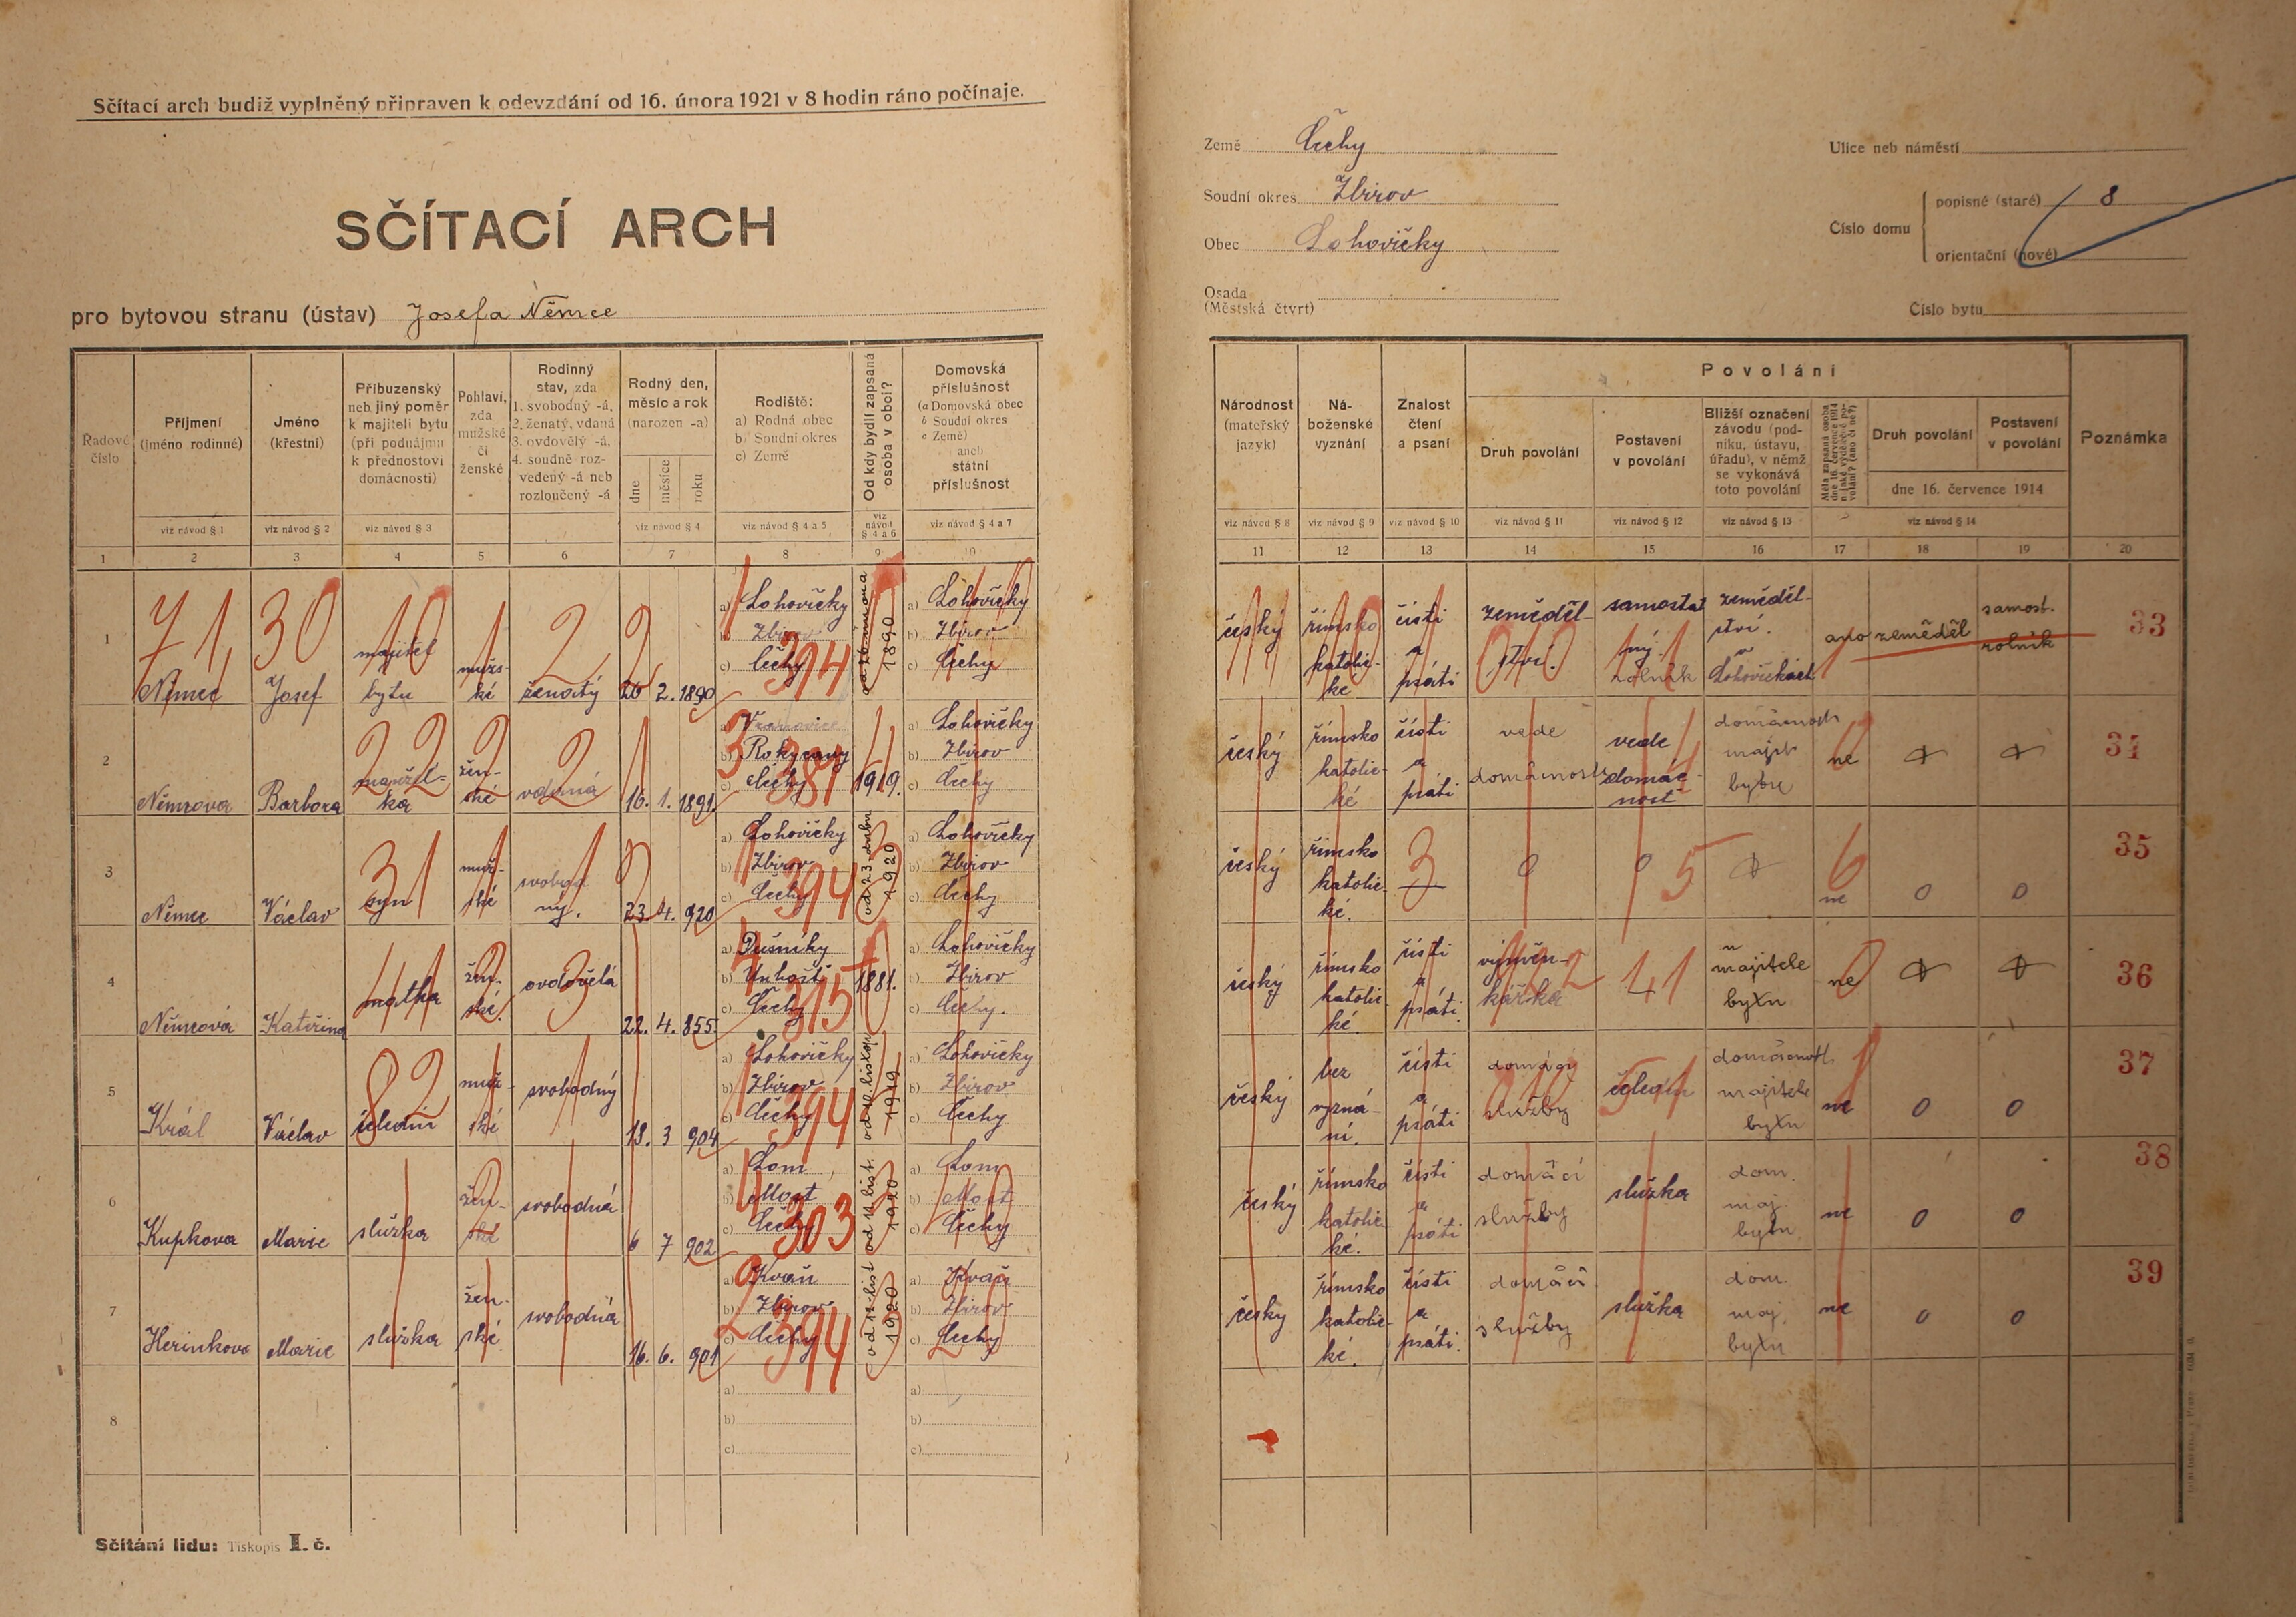 Sčítací arch budiž vyplněný připraven k odevzdání od 16. února 1921 v 8 hodin ráno počínaje.
SČÍTACÍ ARCH
pro bytovou stranu (ústav) Josefa Němce
Země Čechy
Soudní okres Zbirov
Obec Lohovičky
Osada
(Městská čtvrt)
Ulice neb náměstí
Číslo domu
popisné (staré) 8
orientační (nové)
Číslo bytu
Řadové číslo
Příjmení (jméno rodinné)
Jméno (křestní)
Příbuzenský neb jiný poměr k majiteli bytu (při podnájmu k přednostovi domácnosti)
Pohlaví, zda mužské či ženské
Rodinný stav, zda 1. svobodný -á, 2. ženatý, vdaná 3. ovdovělý -á, 4. soudně rozvedený -á neb rozloučený -á
Rodný den, měsíc a rok (narozen -a)
dne měsíce roku
Rodiště: a) Rodná obec b) Soudní okres c) Země
Od kdy bydlí zapsaná osoba v obci?
Domovská příslušnost (a Domovská obec b Soudní okres c Země) aneb státní příslušnost
viz návod § 1 viz návod § 2 viz návod § 3 viz návod § 4 viz návod § 4 a 5 viz návod § 4 a 6 viz návod § 4 a 7
1 2 3 4 5 6 7 8 9 10
Národnost (mateřský jazyk)
Náboženské vyznání
Znalost čtení a psaní
Povolání
Druh povolání
Postavení v povolání
Bližší označení závodu (podniku, ústavu, úřadu), v němž se vykonává toto povolání
Měla zapsaná osoba dne 16. července 1914 nějaké výdělečné povolání? (ano či ne?)
Druh povolání
Postavení v povolání
dne 16. července 1914
Poznámka
viz návod § 8 viz návod § 9 viz návod § 10 viz návod § 11 viz návod § 12 viz návod § 13 viz návod § 14
11 12 13 14 15 16 17 18 19 20
1 Němec Josef majitel bytu mužské ženatý 26 2. 1890
a) Lohovičky
b) Zbirov
c) Čechy
394
1890
a) Lohovičky
b) Zbirov
c) Čechy
český římsko katolické čísti a psáti zemědělství. samostatný rolník zemědělství. v Lohovičkách ano zeměděl samost. rolník 33
2 Němcova Barbora manželka ženské vdaná 16. 1. 1891
b) Rokycany
c) Čechy
387
1919.
a) Lohovičky
b) Zbirov
c) Čechy
český římsko katolické čísti a psáti vede domácnost vede domácnost majit bytu ne 34
3 Němec Václav syn mužské svobodný. 23. 4. 920
a) Lohovičky
b) Zbirov
c) Čechy
394
od 23. dubn 1920
a) Lohovičky
b) Zbirov
c) Čechy
český římsko katolické. — 0 0 ne 0 0 35
4 Němcová Kateřina matka ženské. ovdovělá 22. 4. 855.
a) Dušníky
b) Unhošť
c) Čechy
315
1881.
a) Lohovičky
b) Zbirov
c) Čechy.
český římsko katolické. čísti a psáti. výměnkářka u majitele bytu ne 36
5 Král Václav čeledín mužské svobodný 18. 3 904
a) Lohovičky
b) Zbirov
c) Čechy
394
1919
a) Lohovičky
b) Zbirov
c) Čechy
český bez vyznání. čísti a psáti domácí služby čeledín majitele bytu ne 0 0 37
6 Kupkova Marie služka ženské svobodná 6 7 902
a) Lom
b) Most
c) Čechy
303
od 11 list. 1920
a) Lom
b) Most
c) Čechy
český římsko katolické. čísti a psáti domácí služby služka dom. maj. bytu ne 0 0 38
7 Herinkova Marie služka ženské svobodná 16. 6. 901
a) Kvaň
b) Zbirov
c) Čechy
394
1920
a) Kvaň
b) Zbirov
c) Čechy
česky římsko katolické. čísti a psáti. domácí služby služka dom. maj. bytu ne 0 0 39
8
a)
b)
c)
a)
b)
c)
Sčítání lidu: Tiskopis I. č.